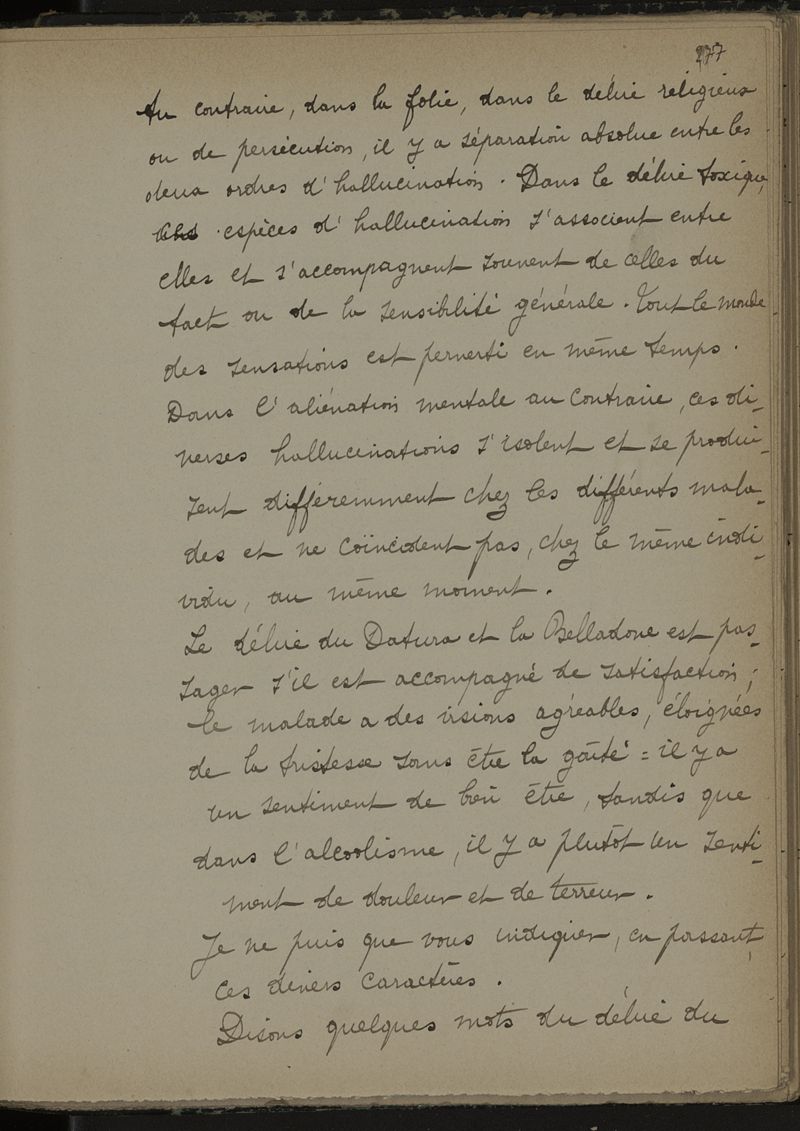 277
Au contraire, dans la folie, dans le délire religieux
ou de persécution, il y a séparation absolue entre les
deux ordres d'hallucination. Dans le délire toxique,
les espèces d'hallucination s'associent entre
elles et s'accompagnent souvent de celles du
tact ou de la sensibilité générale. Tout le monde
des sensations est perverti en même temps.
Dans l'aliénation mentale au contraire, ces di-
verses hallucinations s'isolent et se produi-
sent différemment chez les différents mala-
des et ne coïncident pas, chez le même indi-
vidu, au même moment.
Le délire du Datura et la Belladone est pas-
sager s'il est accompagné de satisfaction;
le malade a des visions agréables, éloignées
de la tristesse sans être la gaîté = il y a
un sentiment de bien être, tandis que
dans l'alcoolisme, il y a plutôt un senti-
ment de douleur et de terreur.
Je ne puis que vous indiquer, en passant,
ces divers caractères.
Disons quelques mots du délire du